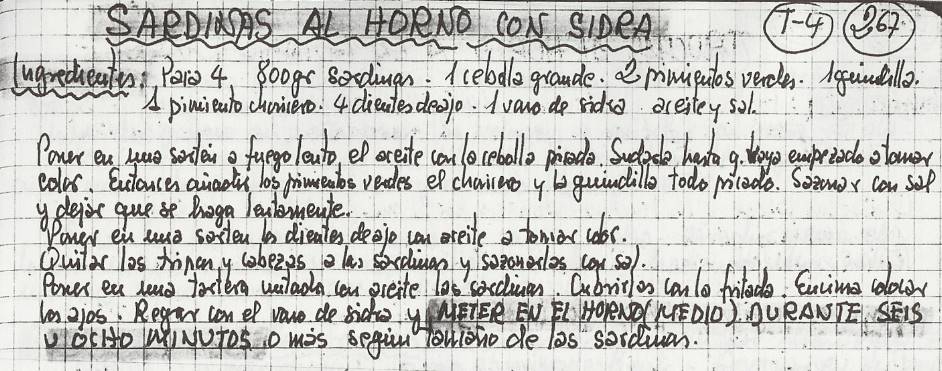 SARDINAS AL HORNO CON SIDRA T-4 267
Ingredientes: Para 4 800gr sardinas. 1 cebolla grande. 2 pimientos verdes. 1 guindilla.
1 pimiento choricero. 4 dientes de ajo. 1 vaso de sidra aceite y sal.
Poner en una sartén a fuego lento, el aceite con la cebolla picada. Sudada hasta q. vaya empezado a tomar
color. Entonces añadir los pimientos verdes el choricero y la guindilla todo picado. Sazonar con sal
y dejar que se haga lentamente.
Poner en una sarten los dientes de ajo con aceite a tomar color.
Quitar las tripas y cabezas a las sardinas y sazonarlas con sal.
Poner en una tartera untada con aceite las sardinas. Cubrirlas con la fritada. Encima colocar
los ajos. Regar con el vaso de sidra y METER EN EL HORNO (MEDIO) DURANTE SEIS
U OCHO MINUTOS o más según tamaño de las sardinas.